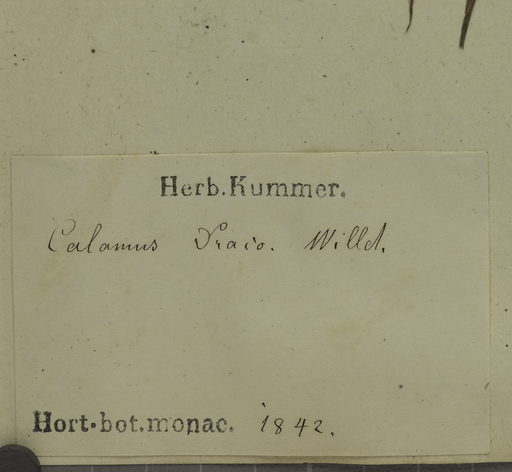 Herb. Kummer.
Calamus Draco. Willd.
Hort. bot. monac. 1842.